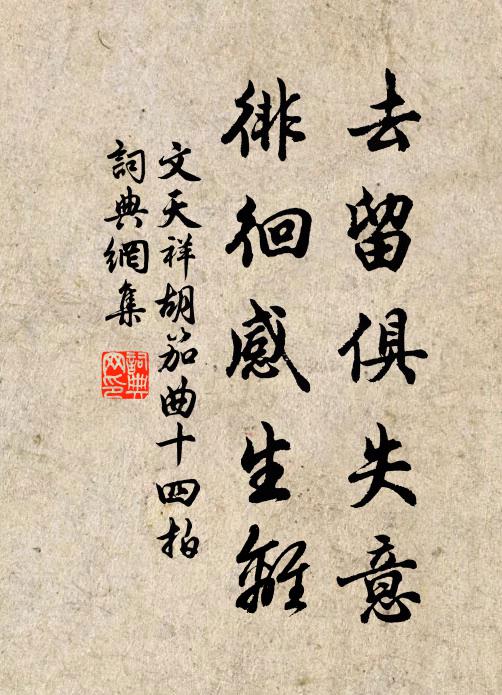 去留俱失意
徘徊感生離
文天祥胡笳曲十四拍
詞典網集
詞典網印